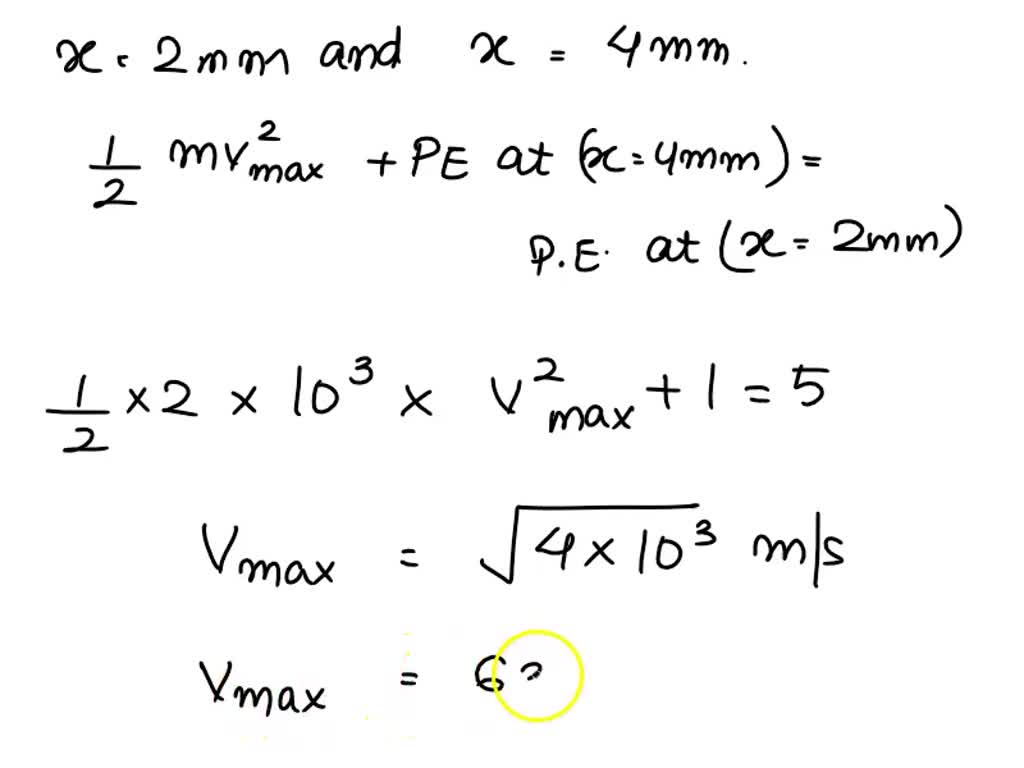 x = 2mm and x = 4mm.
1/2 mv²max + PE at (x = 4mm) =
P.E. at (x = 2mm)
1/2 × 2 × 10³ × v²max + 1 = 5
Vmax = √4 × 10³ m/s
Vmax = 6